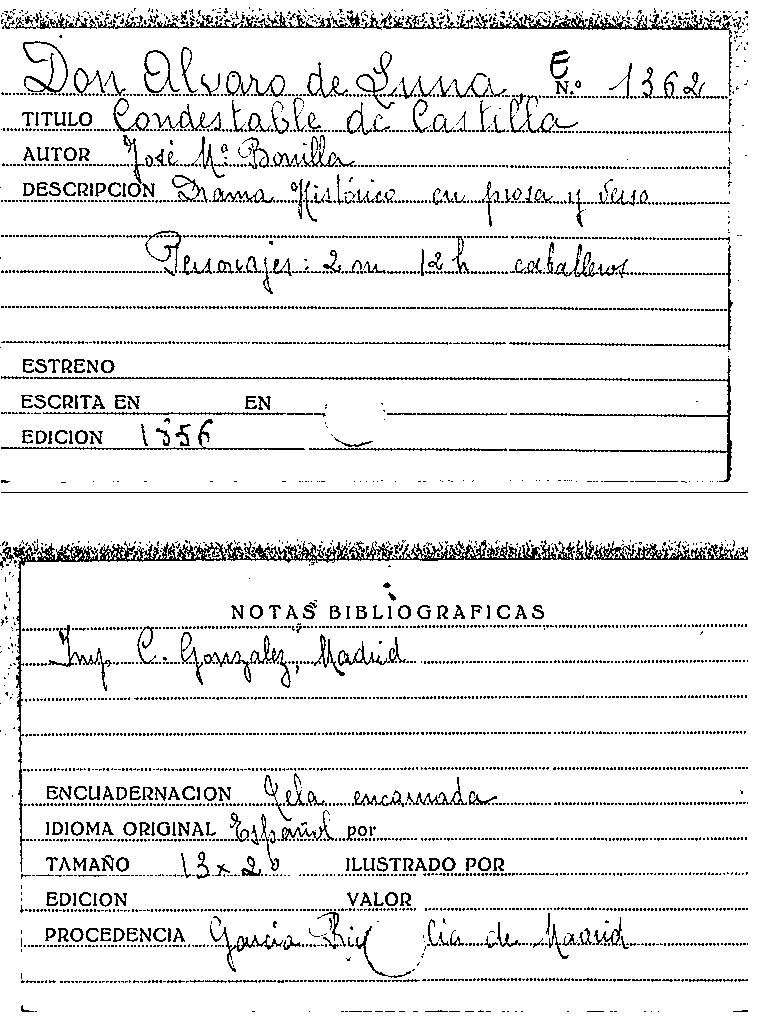 Don Alvaro de Luna, E
N.º 1362
TITULO Condestable de Castilla
AUTOR José Mª Bonilla
DESCRIPCION Drama Histórico en prosa y verso
Personajes: 2 m 12 h caballeros
ESTRENO
ESCRITA EN EN
EDICION 1856
NOTAS BIBLIOGRAFICAS
Imp. C. Gonzalez, Madrid
ENCUADERNACION Tela encarnada
IDIOMA ORIGINAL Español por
TAMAÑO 13 x 20 ILUSTRADO POR
EDICION VALOR
PROCEDENCIA Garcia de Madrid